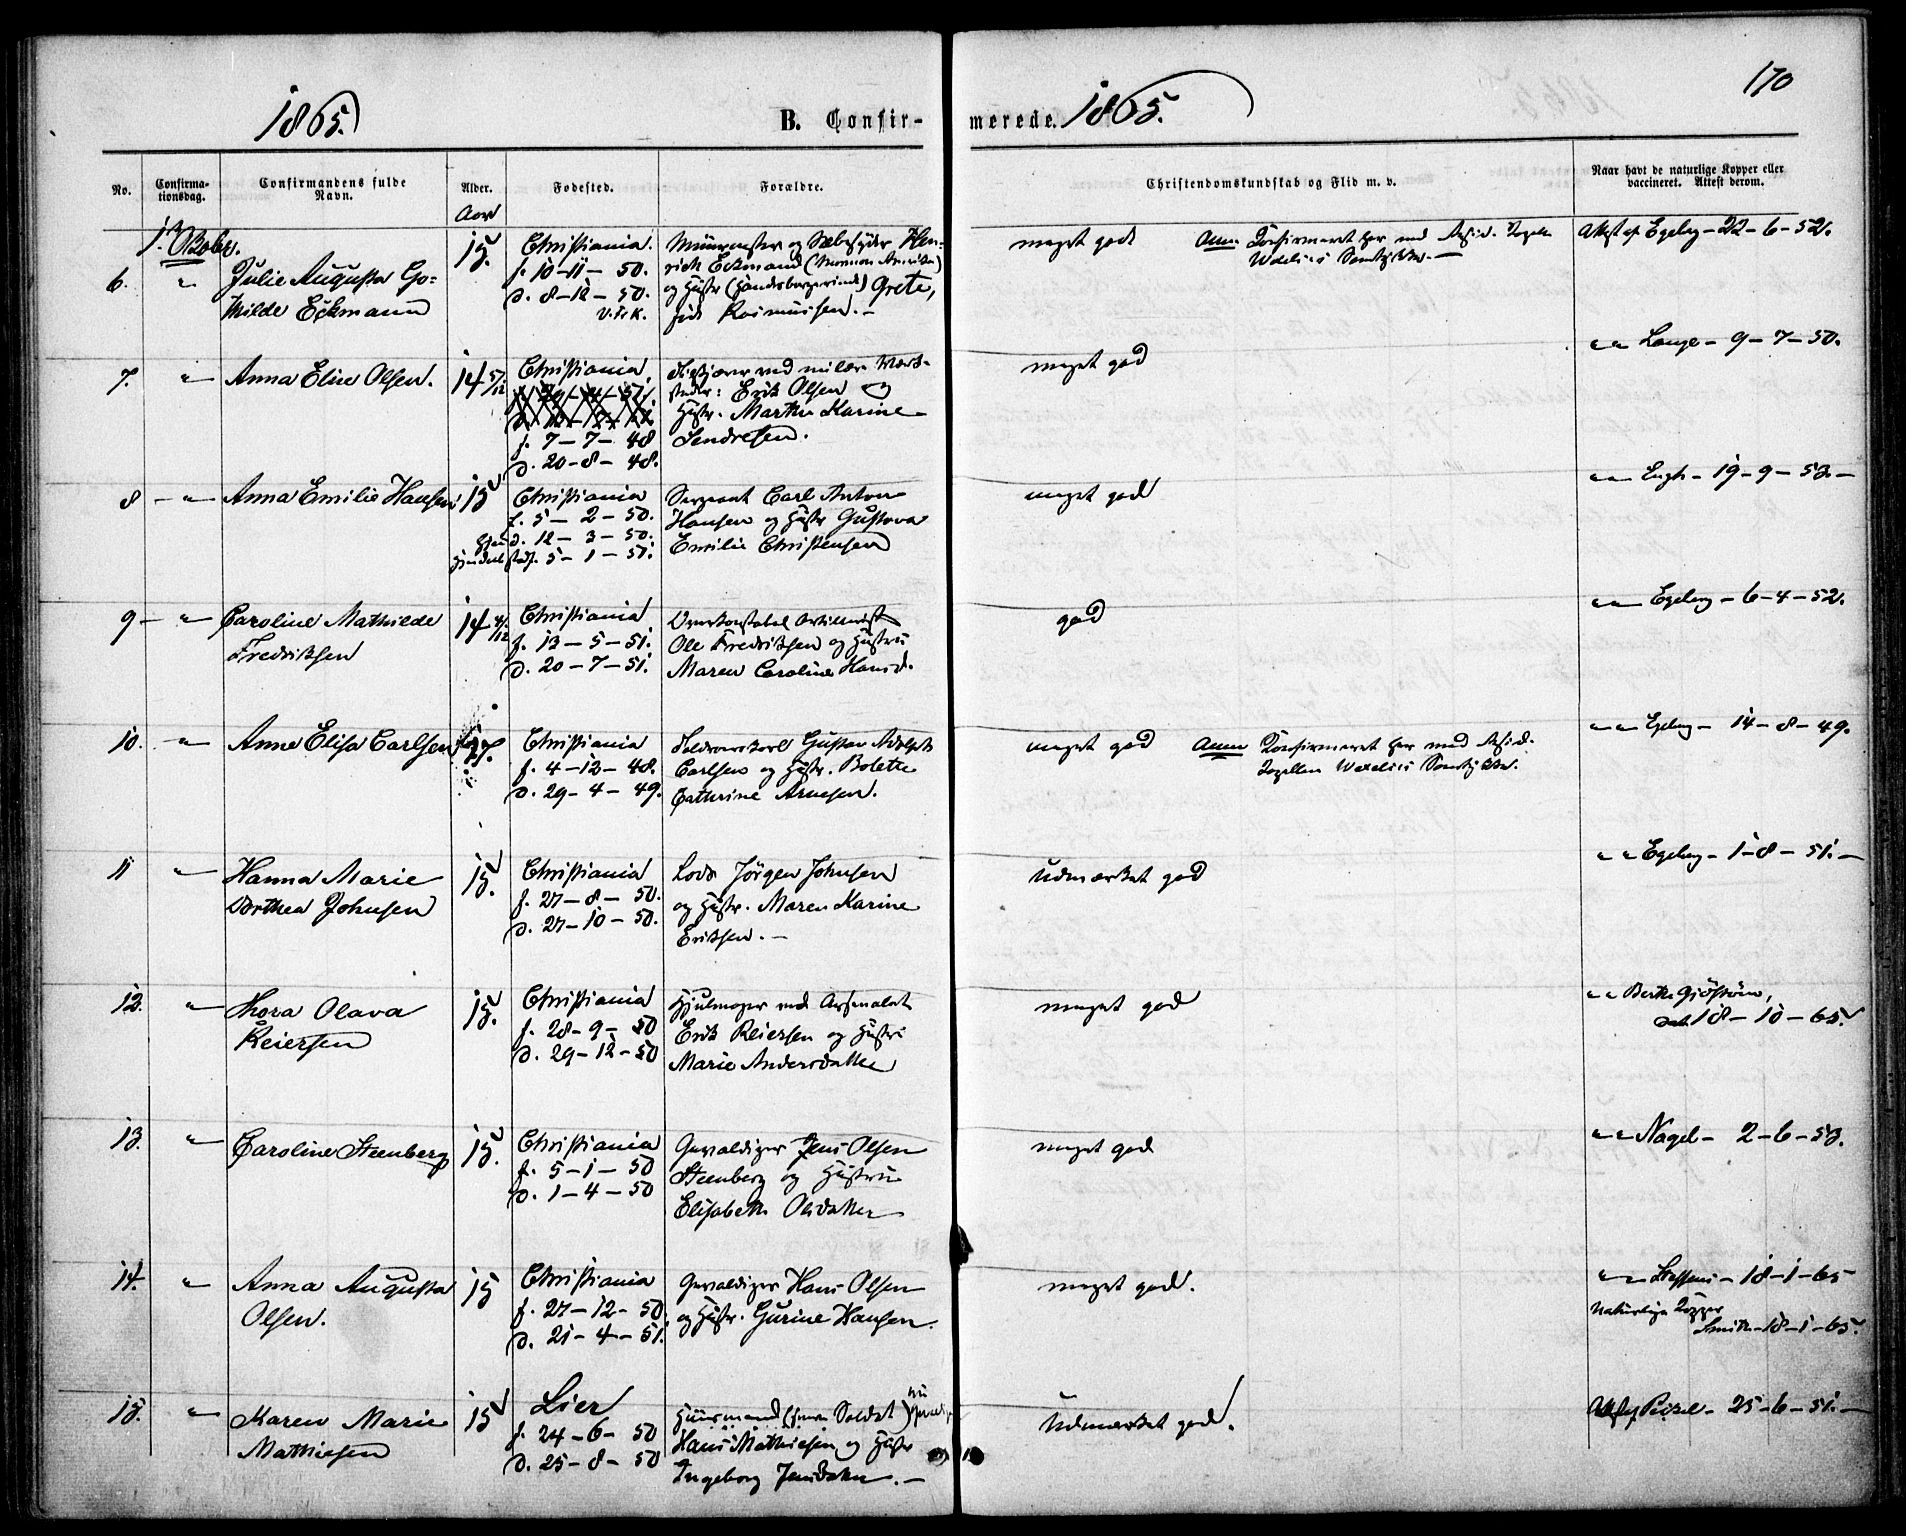 170
1865.
B. Confir-
merede.
1865.
No.
Confirma-
tionsdag.
Confirmandens fulde
Navn.
Alder.
Fødested.
Forældre.
Christendomskundskab og Flid m. v.
Naar havt de naturlige Kopper eller
vaccineret. Attest derom.
Aar
1. Octobr.
6. "
Julie Augusta Go-
thilde Eckmann
15.
Christiania.
f. 10-11-50.
d. 8-12-50.
v. Fr. K.
Muurmester og Sæbesyder Hen-
rich Eckmann
og Hustr Grete,
født Rasmussen.
meget godt
Anm. Konfirmeret her med Resid. Kapln
Wexelsens Samtykke.
Attest af Egeberg - 22-6-52.
7. "
Anna Eline Olsen.
14 5/12
Christiania,
f. 7-7-48
d. 20-8-48.
Erik Olsen og
Hustr. Marthe Karine
Sendresen.
meget god
" " Lange - 9-7-50.
8 - "
Anna Emilie Hansen
15
Christiania
f. 5-2-50.
Hjemd. 12-3-50.
5-1-51.
Sergeant Carl Anton
Hansen og Hustr Gustava
Emilie Christensen
meget god
" " Engh - 19-9-53.
9 - "
Caroline Mathilde
Fredriksen
14 4/12
Christiania
f. 13-5-51.
d. 20-7-51.
Overkonstabel Artillerist
Ole Fredriksen og Hustru
Maren Caroline Hansd.
god
" " Egeberg - 6-4-52.
10. "
Anne Elisa Carlsen
17.
Christiania
f. 4-12-48.
d. 29-4-49.
Gustav Adolph
Carlsen og Hustr. Bolette
Cathrine Arnesen.
meget god
Anm Konfirmeret her med Resid.
Kapellan Wexelsens Samtykke.
" " Egeberg - 14-8-49.
11 "
Hanna Marie
Dorthea Johnsen
15.
Christiania
f. 27-8-50.
d. 27-10-50.
Lods Jørgen Johnsen
og Hustr. Maren Karine
Eriksen.
Udmærket god
" " Egeberg - 1-8-51.
12. "
Thora Olava
Reiersen
15.
Christiania
f. 28-9-50
d. 29-12-50
Hjulmager ved Arsenalet
Erik Reiersen og Hustru
Marie Andersdatter
meget god
" " Berthe Sjöström,
dat. 18-10-65.
13. "
Caroline Steenberg
15.
Christiania
f. 5-1-50
d. 1-4-50
Gevaldiger Jens Olsen
Steenberg og Hustru
Elisabeth Olsdatter
meget god
" " Nagel - 2-6-53.
14. "
Anna Augusta
Olsen.
15
Christiania
f. 27-12-50.
d. 21-4-51.
Gevaldiger Hans Olsen
og Hustr. Gurine Hansen.
meget god.
" Steffens - 18-1-65
Naturlige Kopper
Smith - 18-1-65.
15. "
Karen Marie
Mathiesen
15
Lier
f. 24-6-50
d. 25-8-50
Huusmand (forrn Soldat) nu
Hans Mathiesen og Hustr
Ingeborg Jensdatter.
Udmærket god.
Att af Peizel - 25-6-51.